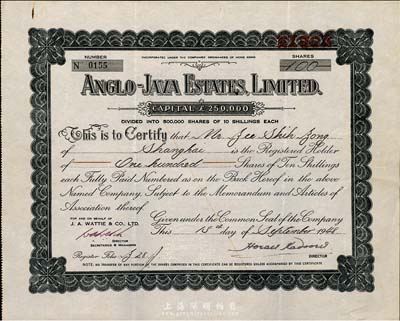 NUMBER
INCORPORATED UNDER THE COMPANIES' ORDINANCES OF HONG KONG
SHARES
N 0155
100
ANGLO-JAVA ESTATES, LIMITED.
CAPITAL £250,000
DIVIDED INTO 500,000 SHARES OF 10 SHILLINGS EACH
This is to Certify that Mr. Zee Shih Zong
of Shanghai is the Registered Holder
of One hundred Shares of Ten Shillings
each Fully Paid Numbered as on the Back Hereof in the above
Named Company, Subject to the Memorandum and Articles of
Association thereof.
FOR AND ON BEHALF OF
J. A. WATTIE & CO., LTD.
Given under the Common Seal of the Company
This 15th day of September 1941
DIRECTOR
SECRETARIES & MANAGERS
Register Folio
DIRECTOR
NOTE: NO TRANSFER OF ANY PORTION OF THE SHARES COMPRISED IN THIS CERTIFICATE CAN BE REGISTERED UNLESS ACCOMPANIED BY THIS CERTIFICATE